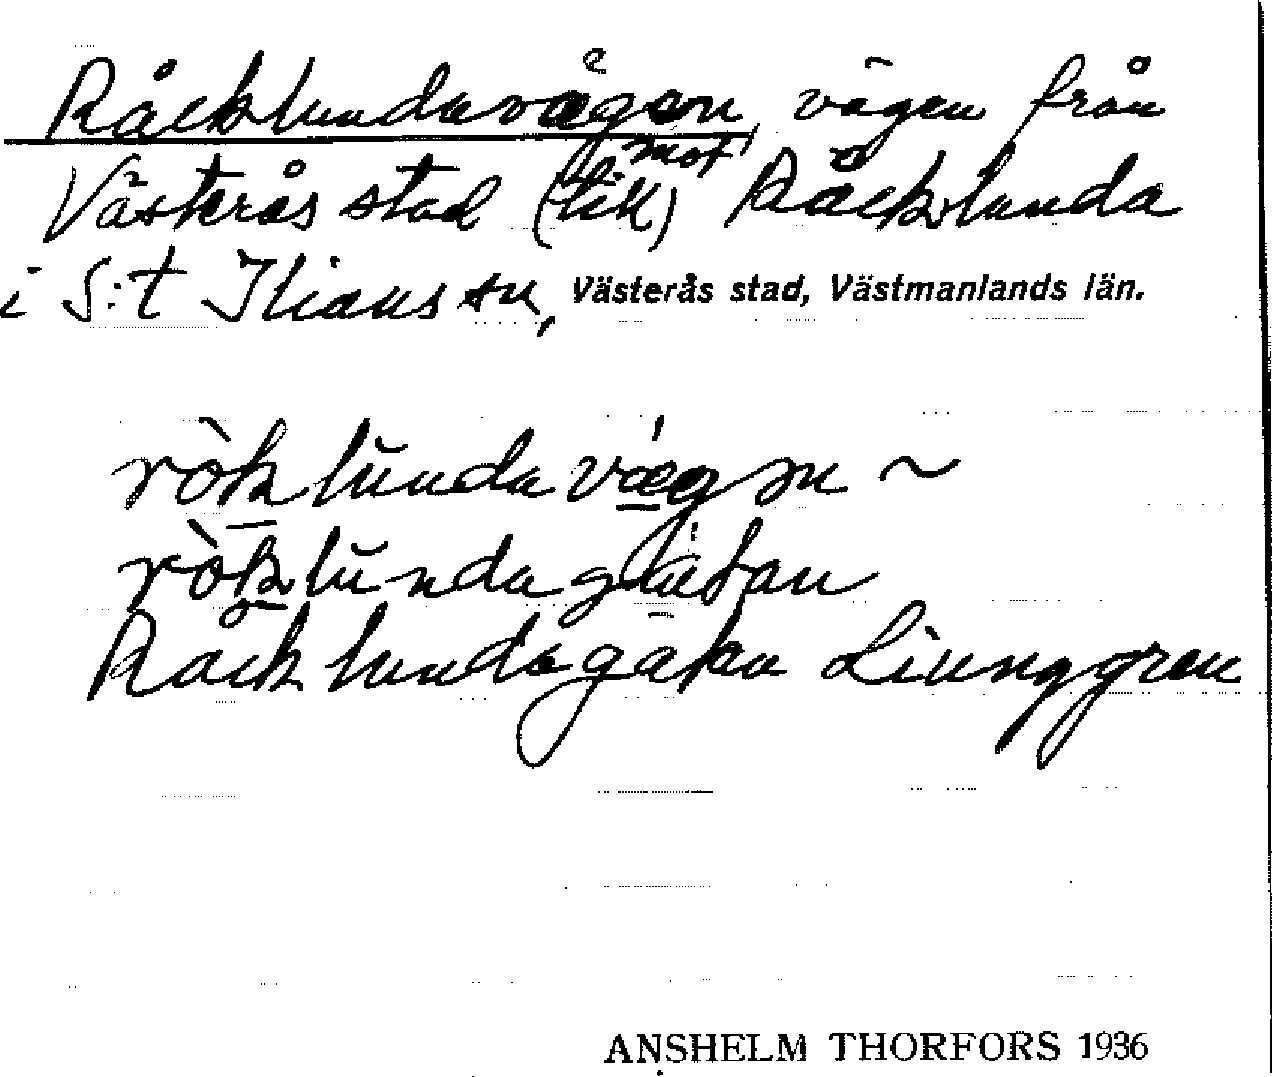 Råcklundavägen, vägen från
Västerås stad (till) mot Råcklunda
i S:t Ilians sn, Västerås stad, Västmanlands län.
ròklŭndavæ̀gən ~
ròklŭndagatan
Råcklundagatan Ljunggren
ANSHELM THORFORS 1936